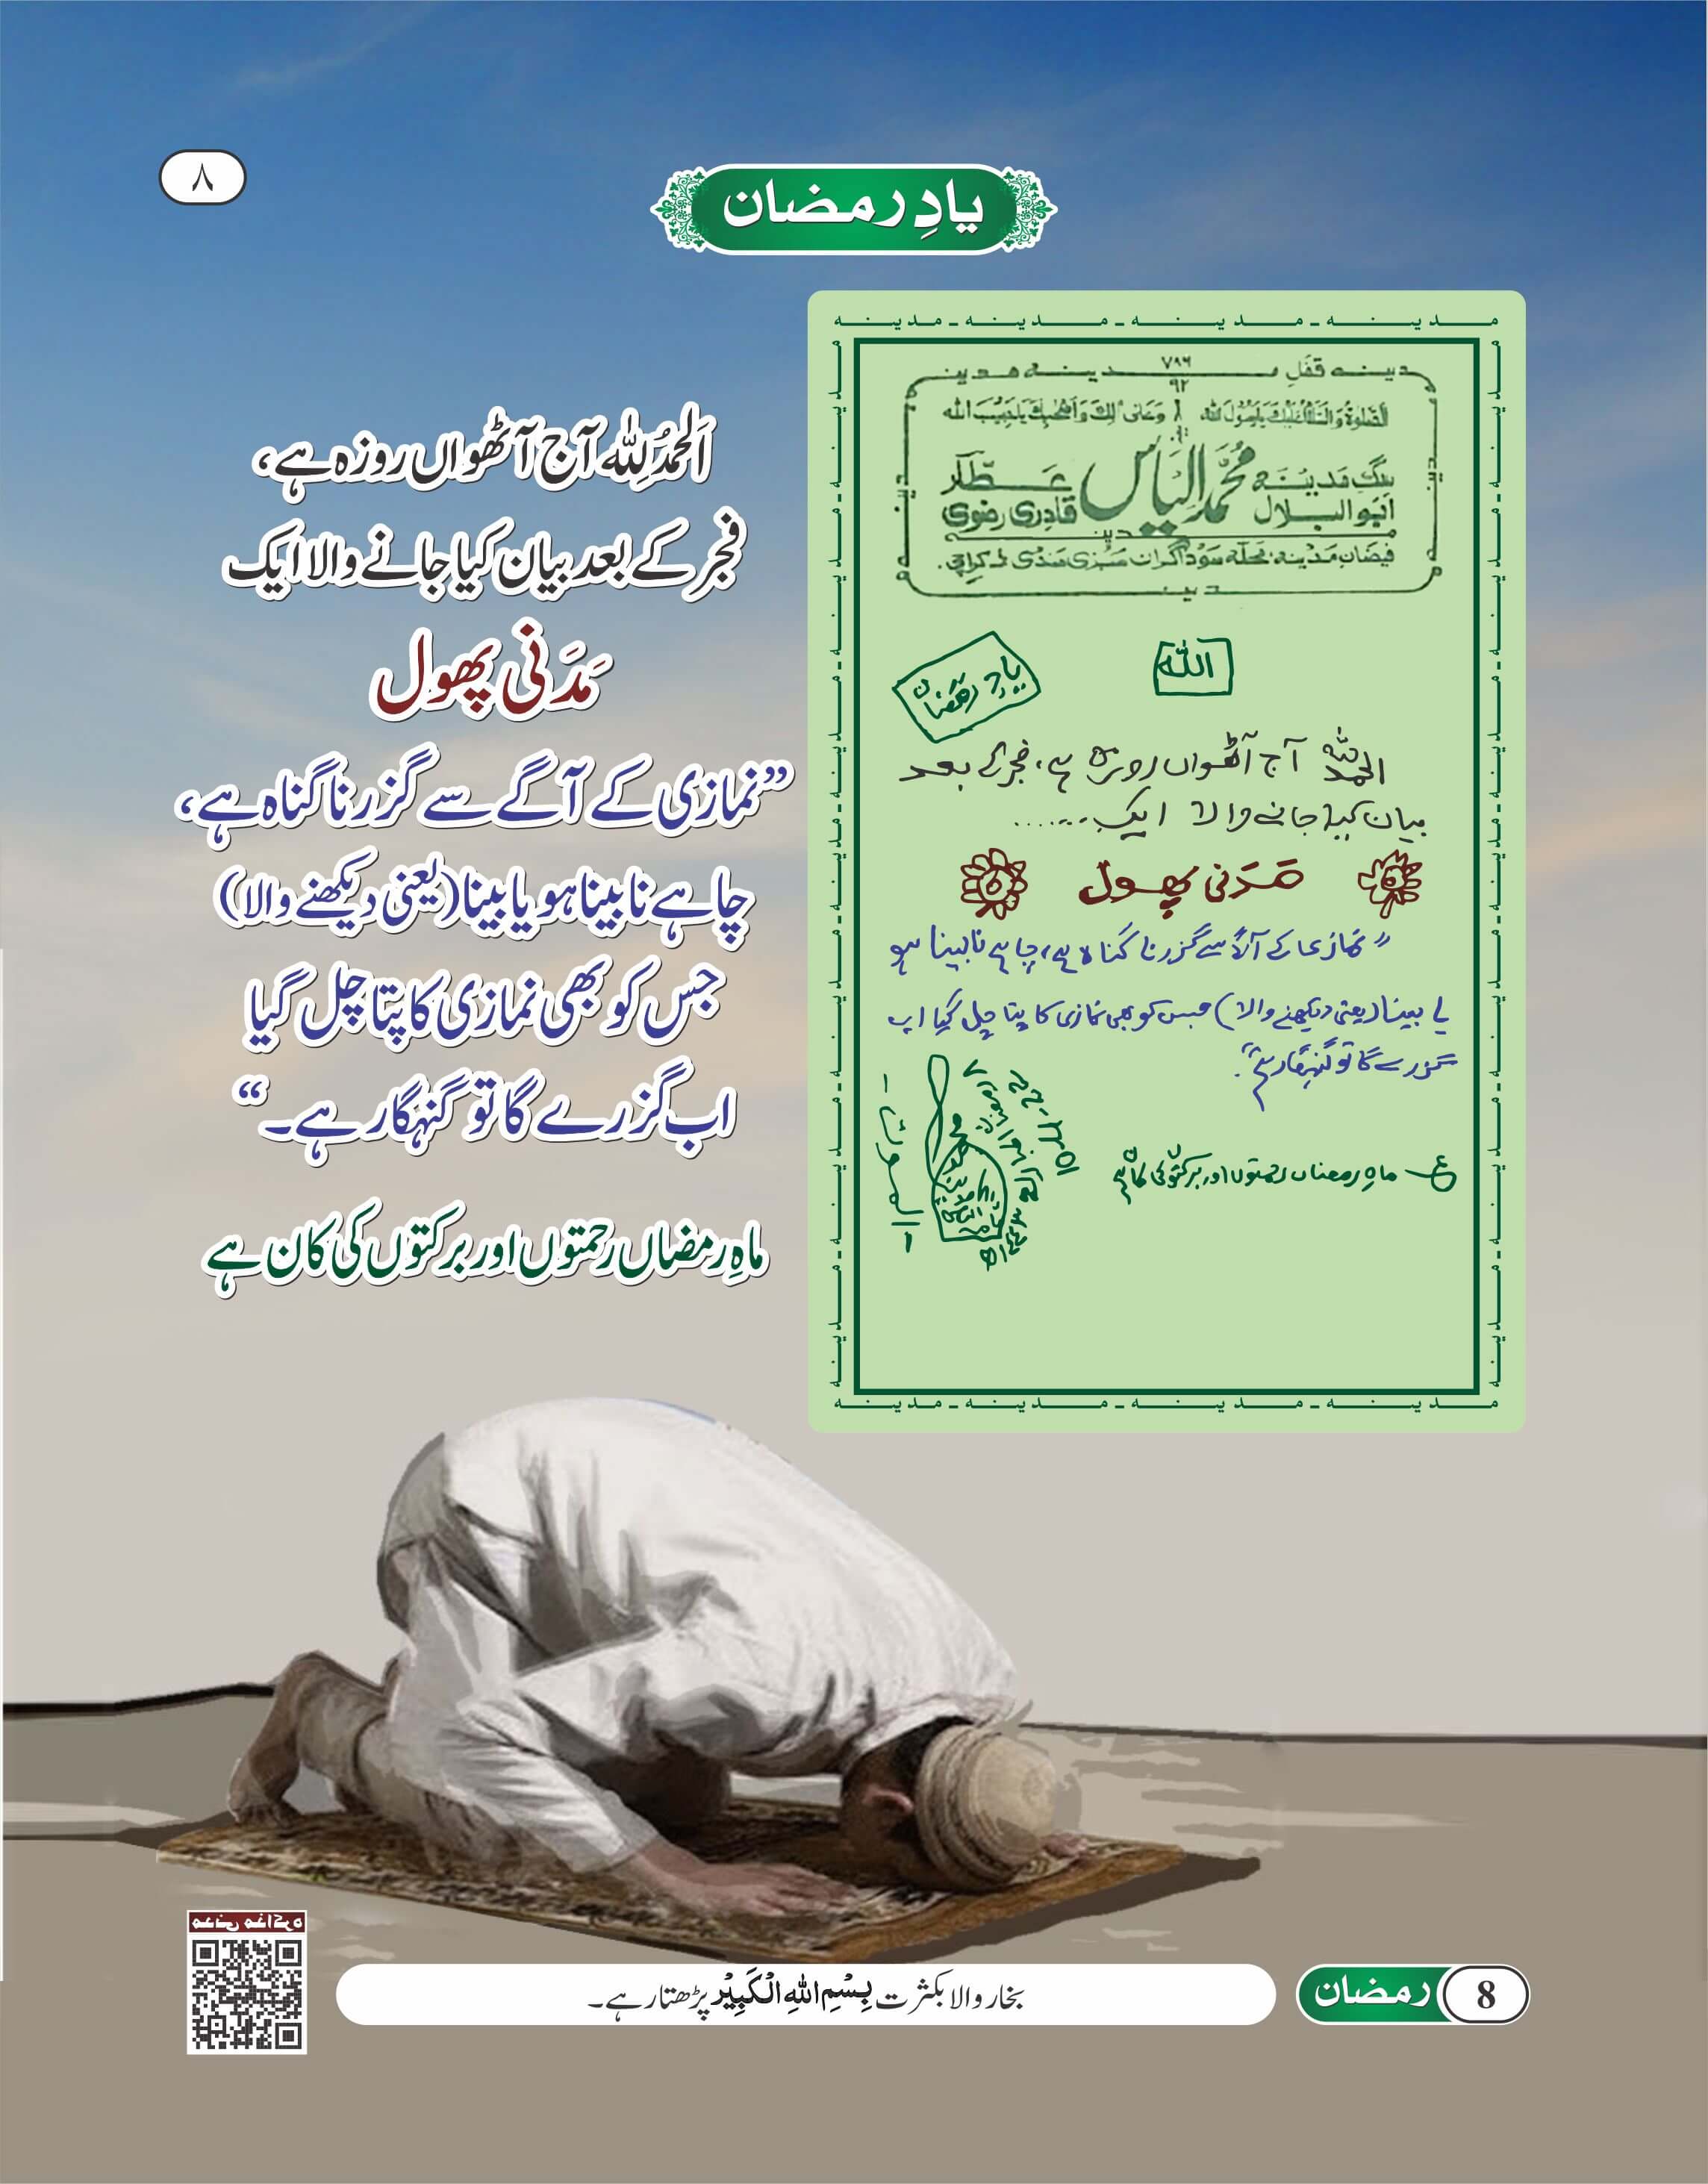 ۸
یادِ رمضان
مدینہ ۔ مدینہ ۔ مدینہ ۔ مدینہ
۷۸۶
۹۲
اَلصَّلٰوۃُ وَالسَّلَامُ عَلَیْكَ یَارَسُوْلَ اللہ وَعَلٰی اٰلِكَ وَاَصْحٰبِكَ یَاحَبِیْبَ اللہ
سگِ مدینہ محمد الیاس عطّار
ابوالبلال قادری رضوی
فیضانِ مدینہ محلّہ سوداگران سبزی منڈی کراچی۔
اللہ
یادِ رمضان
الحمدللہ آج آٹھواں روزہ ہے، فجر کے بعد
بیان کیا جانے والا ایک......
مَدَنی پھول
”نمازی کے آگے سے گزرنا گناہ ہے، چاہے نابینا ہو
یا بینا (یعنی دیکھنے والا) جس کو بھی نمازی کا پتا چل گیا اب
گزرے گا تو گنہگار ہے۔“
ع ماہِ رمضاں رحمتوں اور برکتوں کی کان ہے
اَلحمدُلِلّٰہ آج آٹھواں روزہ ہے،
فجر کے بعد بیان کیا جانے والا ایک
مَدَنی پھول
”نمازی کے آگے سے گزرنا گناہ ہے،
چاہے نابینا ہو یا بینا (یعنی دیکھنے والا)
جس کو بھی نمازی کا پتا چل گیا
اب گزرے گا تو گنہگار ہے۔“
ماہِ رمضاں رحمتوں اور برکتوں کی کان ہے
مدنی مذاکرہ
بخار والا بکثرت بِسْمِ اللہِ الْکَبِیْر پڑھتا رہے۔
رمضان 8